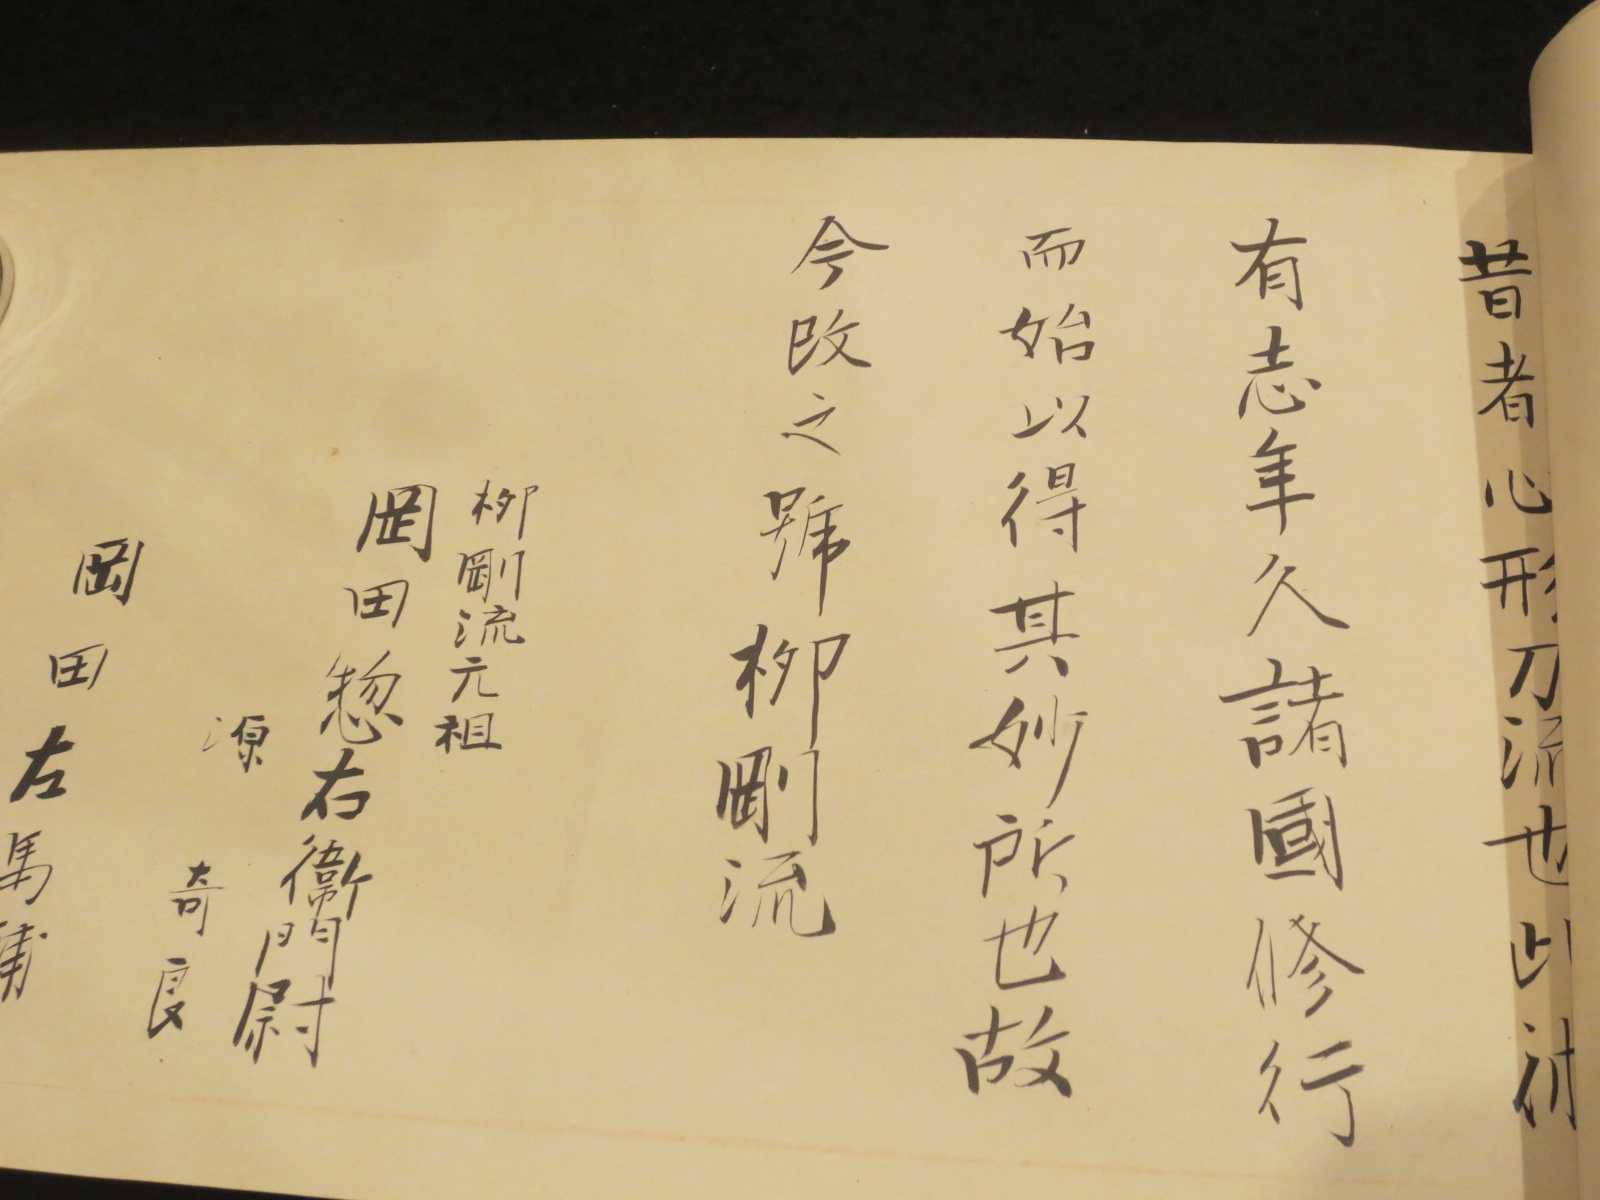 昔者心形刀流也此術
有志年久諸國修行
而始以得其妙所也故
今改之號柳剛流
柳剛流元祖
岡田惣右衛門尉
源奇良
岡田左馬輔